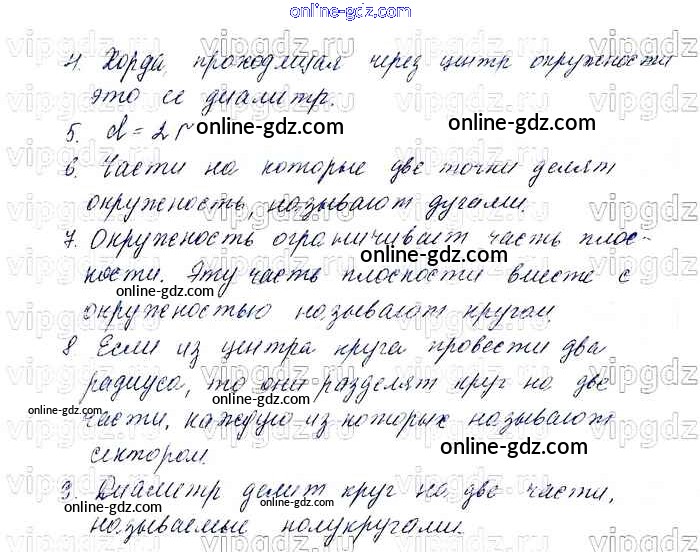 online-gdz.com
4. Хорда, проходящая через центр окружности
это ее диаметр.
5. d = 2 r online-gdz.com online-gdz.com
6. Части на которые две точки делят
окружность, называют дугами.
online-gdz.com online-gdz.com
7. Окружность ограничивает часть плос-
кости. Эту часть плоскости вместе с
online-gdz.com online-gdz.com
окружностью называют кругом.
8 Если из центра круга провести два
радиуса, то они разделят круг на две
online-gdz.com online-gdz.com
части, каждую из которых называют
online-gdz.com
сектором.
9. Диаметр делит круг на две части,
называемые полукругами.
online-gdz.com online-gdz.com